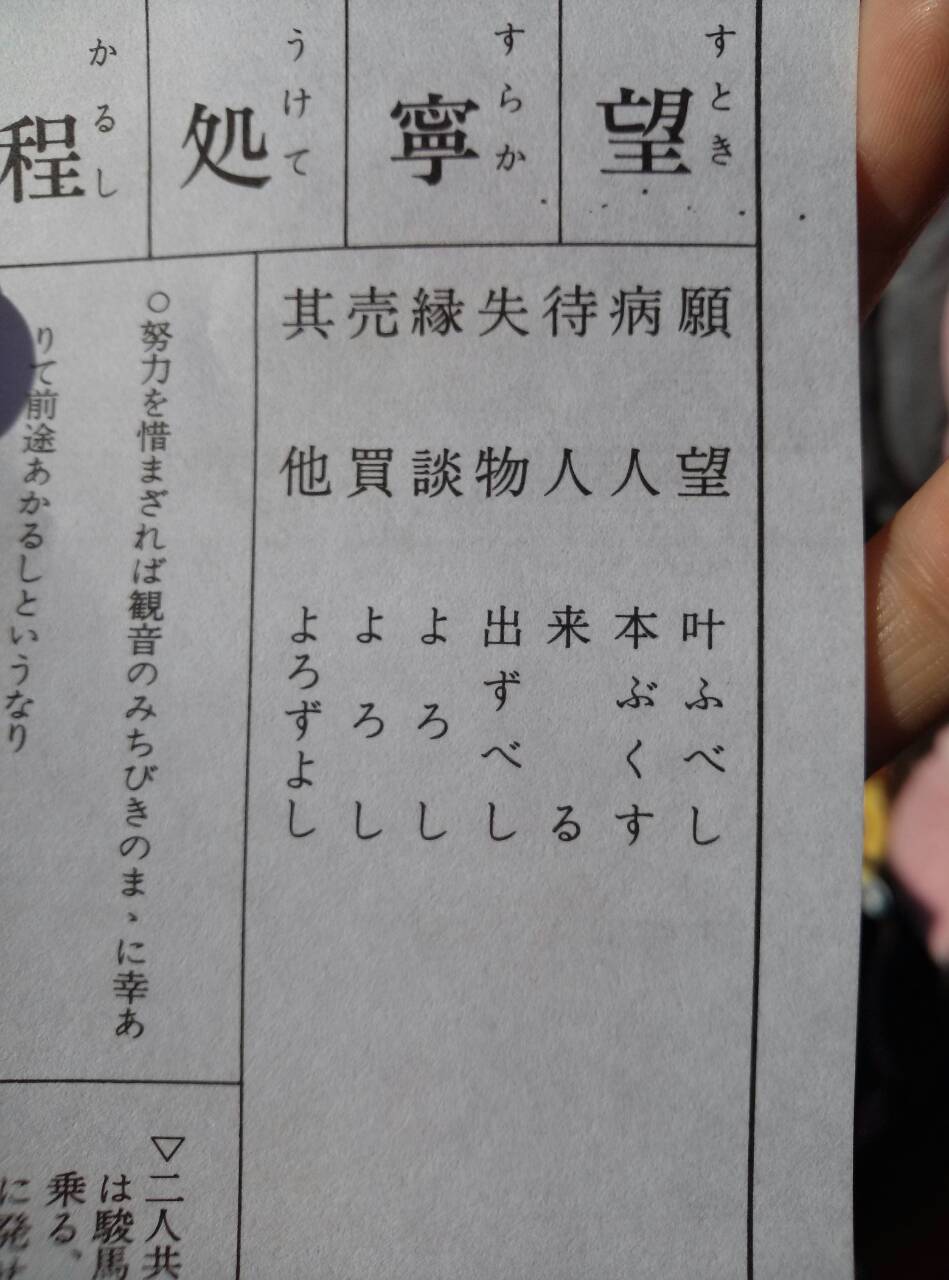 望 すとき
寧 すらか
処 うけて
程 かるし
願望 叶ふべし
病人 本ぶくす
待人 来る
失物 出ずべし
縁談 よろし
売買 よろし
其他 よろずよし
○努力を惜まざれば観音のみちびきのまゝに幸あ
りて前途あかるしというなり
▽二人共
は駿馬
乗る、
に発